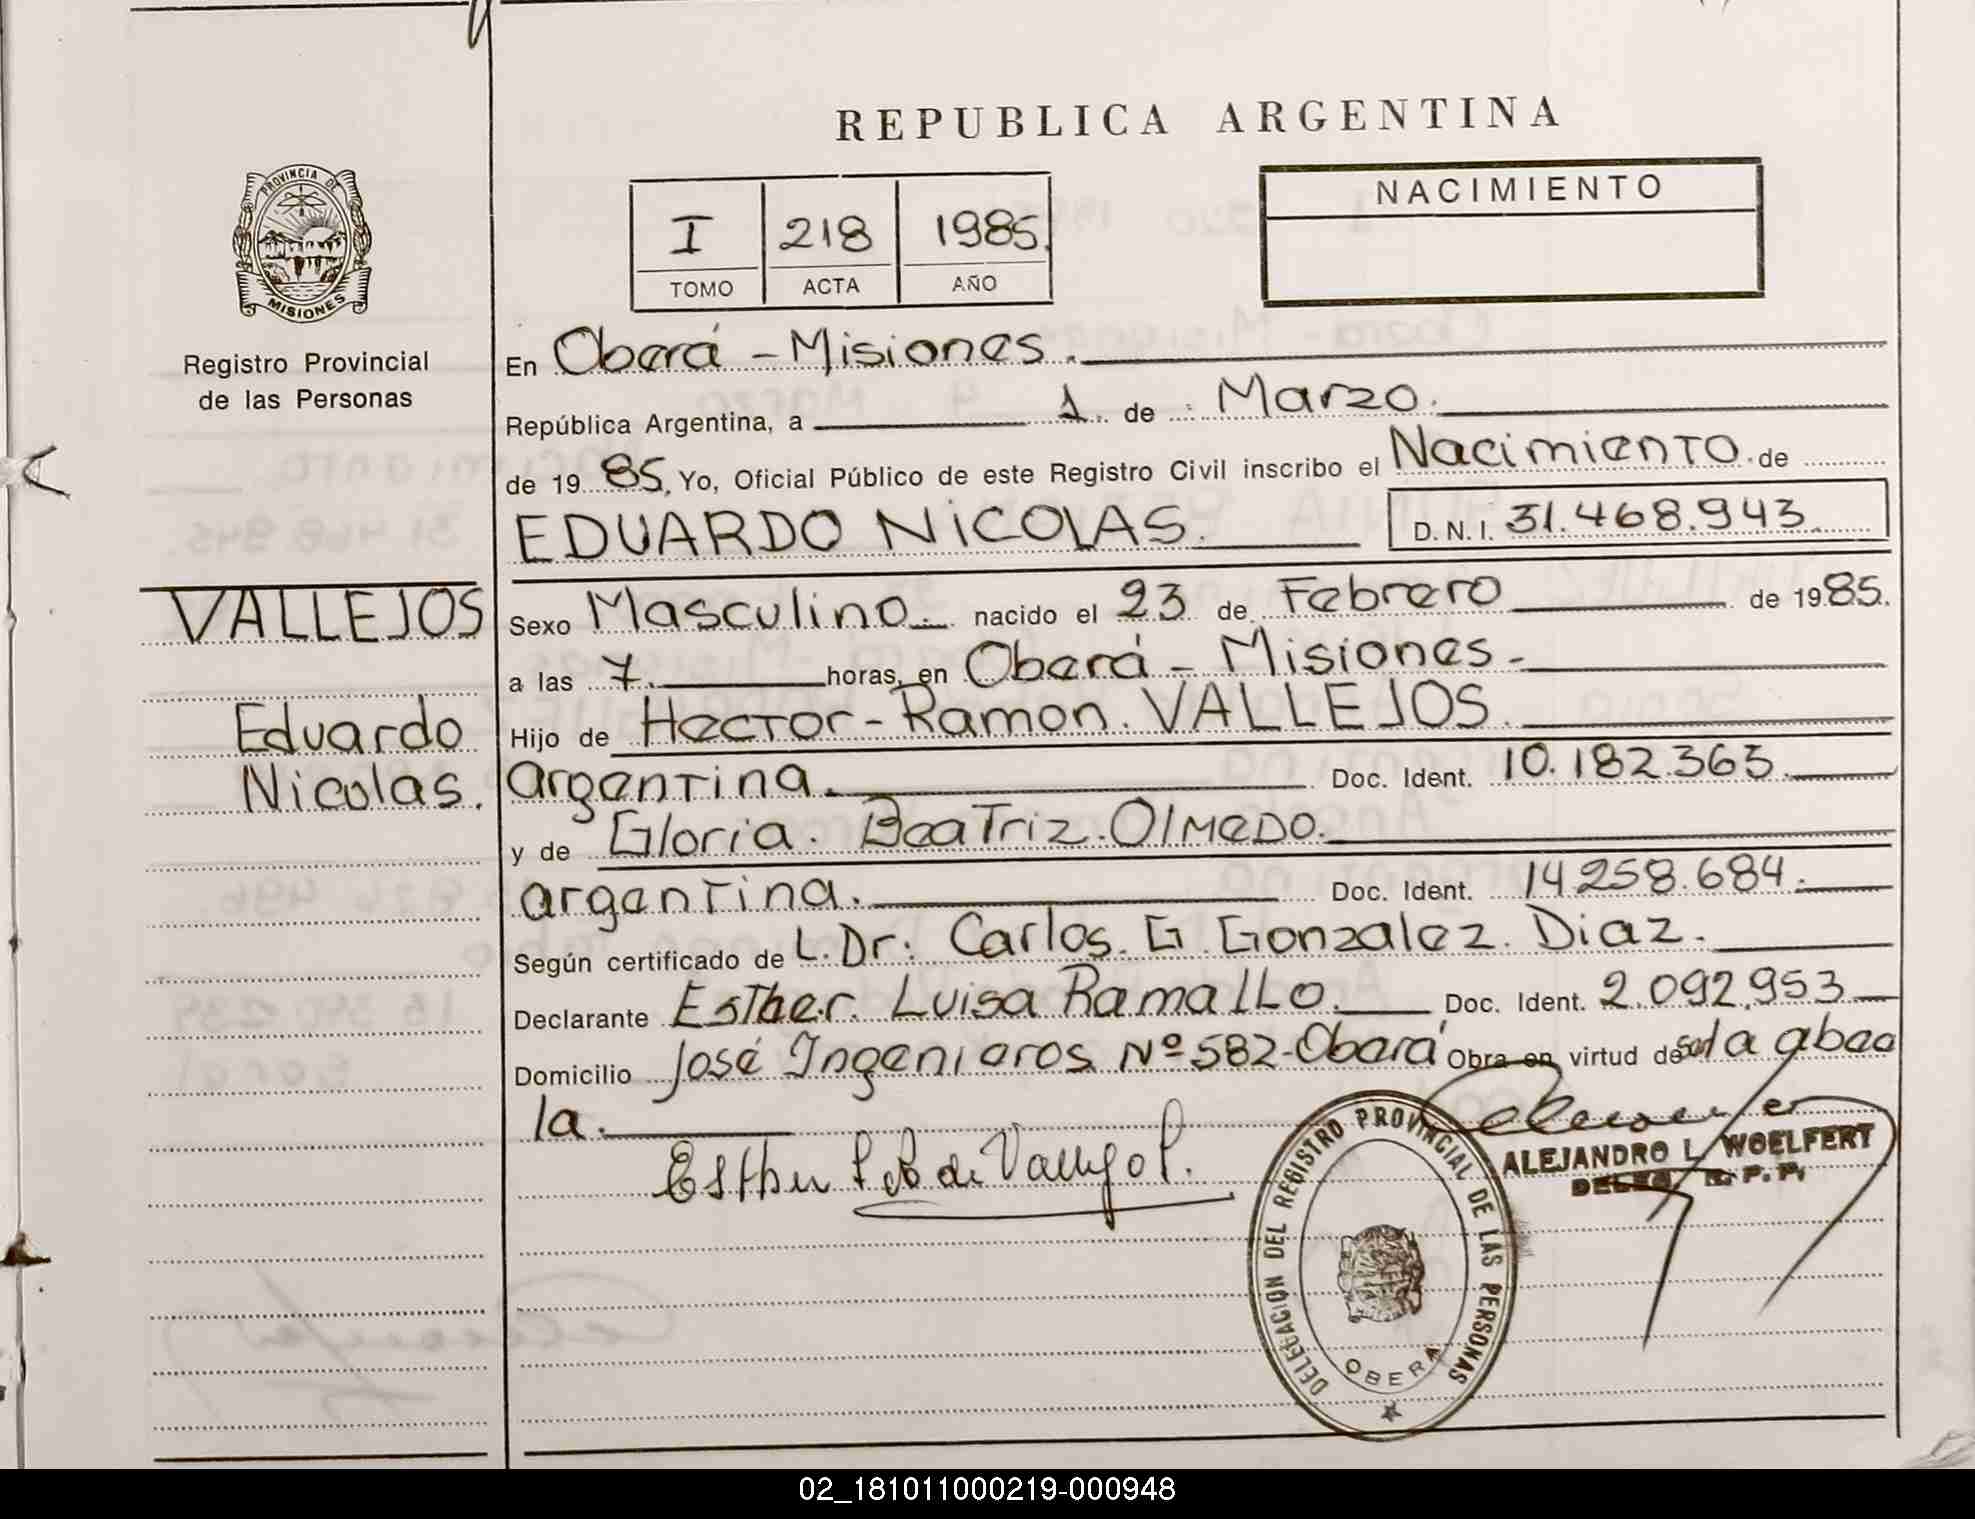 REPUBLICA ARGENTINA
PROVINCIA DE
MISIONES
Registro Provincial
de las Personas
I 218 1985
TOMO ACTA AÑO
NACIMIENTO
En Oberá - Misiones.
República Argentina, a 1 de Marzo.
de 19 85, Yo, Oficial Público de este Registro Civil inscribo el Nacimiento de
EDUARDO NICOLAS. D. N. I. 31.468.943
VALLEJOS
Eduardo
Nicolas.
Sexo Masculino. nacido el 23 de Febrero de 1985.
a las 7. horas, en Oberá - Misiones -
Hijo de Hector - Ramon. VALLEJOS.
argentina. Doc. Ident. 10.182.363.
y de Gloria. Beatriz. Olmedo.
argentina. Doc. Ident. 14.258.684.
Según certificado de L. Dr: Carlos. G. Gonzalez. Diaz.
Declarante Esther. Luisa Ramallo. Doc. Ident. 2.092.953
Domicilio José Ingenieros Nº 582 - Oberá Obra en virtud de ser la abue
la.
Esther de Vallejos.
DELEGACION DEL REGISTRO PROVINCIAL DE LAS PERSONAS
OBERA
ALEJANDRO L. WOELFERT
DELEG. R. P. P.
02_181011000219-000948